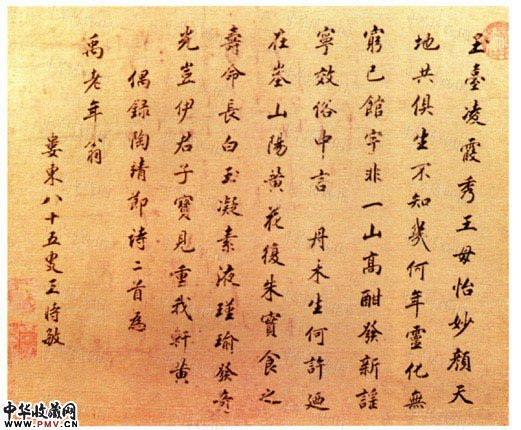 玉臺凌霞秀王母怡妙顏天
地共俱生不知幾何年靈化無
窮已館宇非一山高酣發新謠
寧效俗中言 丹木生何許迺
在峚山陽黃花復朱實食之
壽命長白玉凝素液瑾瑜發奇
光豈伊君子寶見重我軒黃
偶錄陶靖節詩二首為
禹老年翁
婁東八十五叟王時敏
中华收藏网
www.PMV.cn